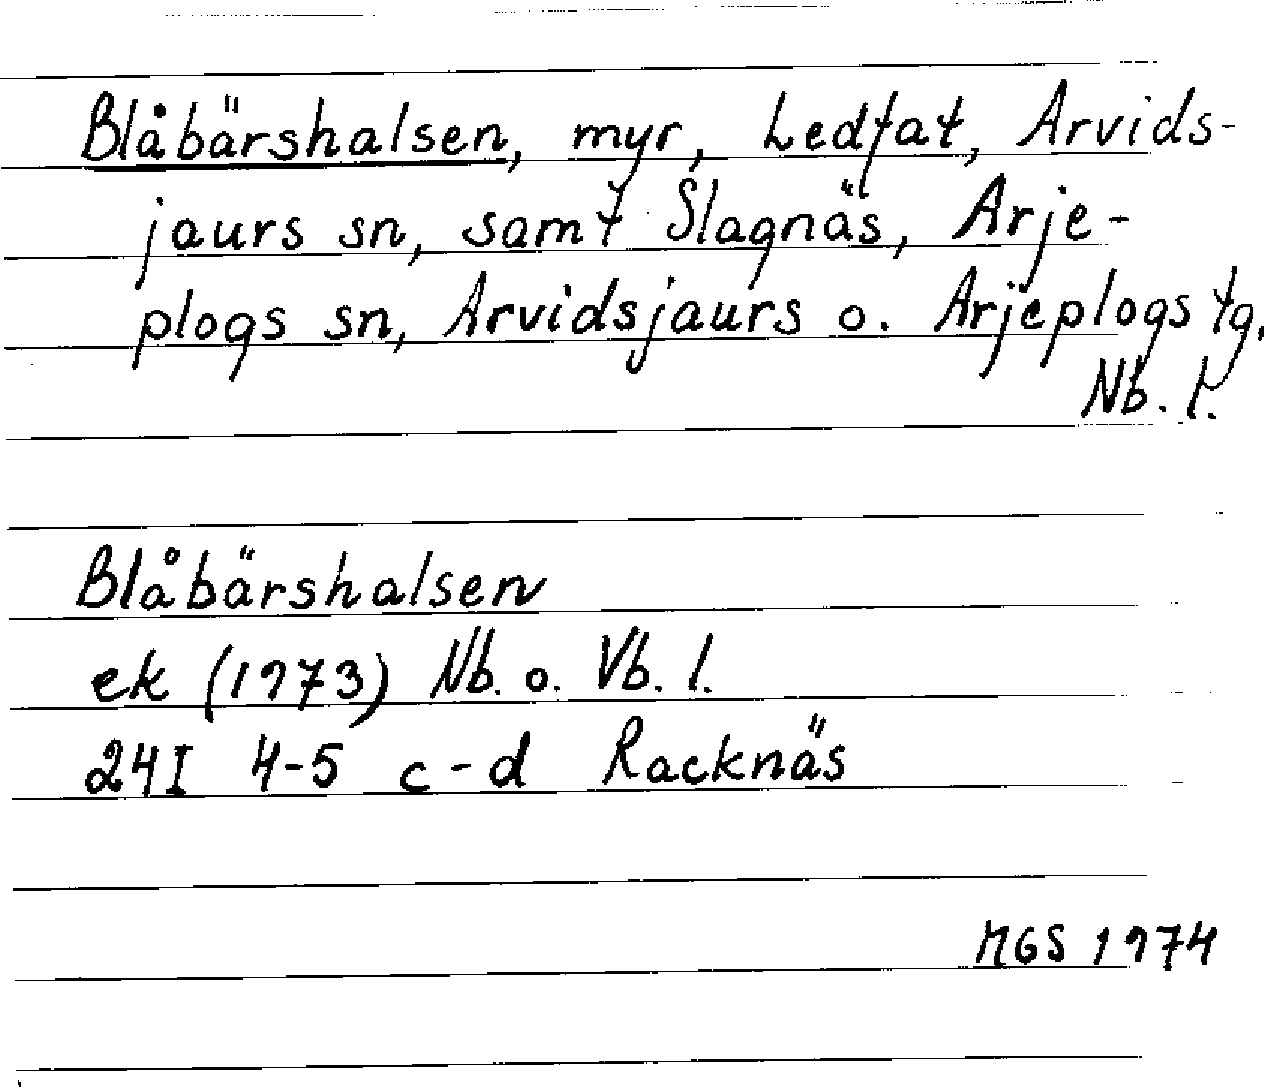 Blåbärshalsen, myr, Ledfat, Arvids-
jaurs sn, samt Slagnäs, Arje-
plogs sn, Arvidsjaurs o. Arjeplogs tg.
Nb. l.
Blåbärshalsen
ek (1973) Nb. o. Vb. l.
24I 4-5 c-d Racknäs
MGS 1974